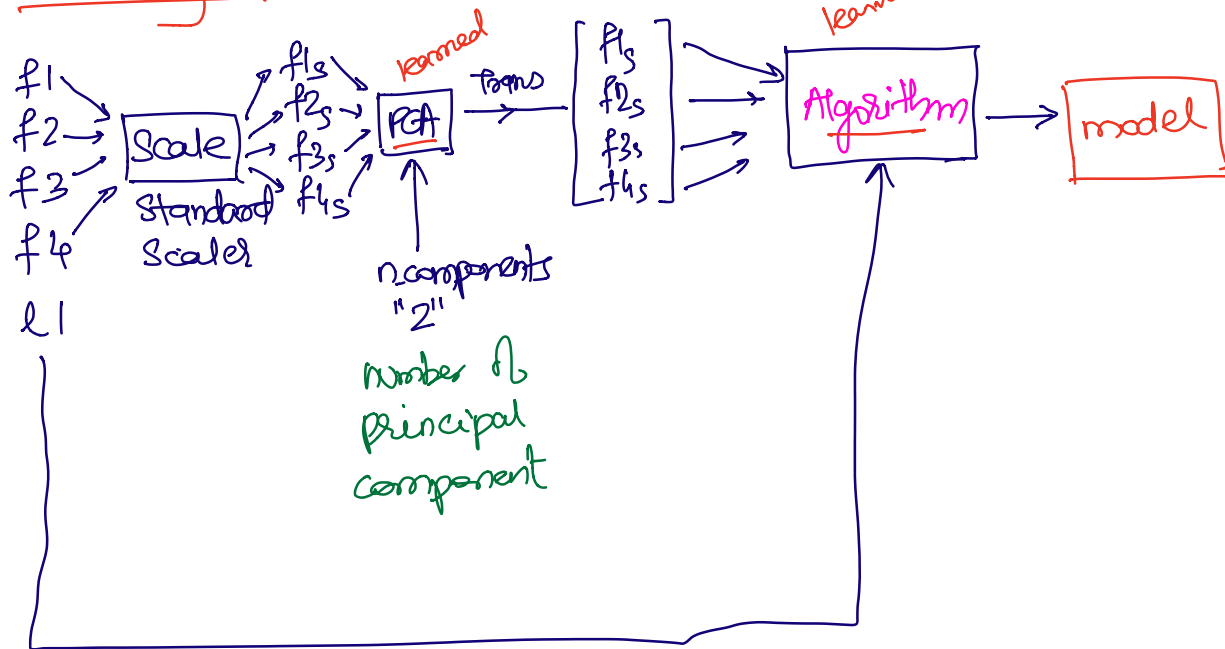 f1
f2
f3
f4
l1
Scale
Standard
Scaler
f1s
f2s
f3s
f4s
learned
PCA
n_components
"2"
number of
principal
component
Trans
f1s
f2s
f3s
f4s
Algorithm
model